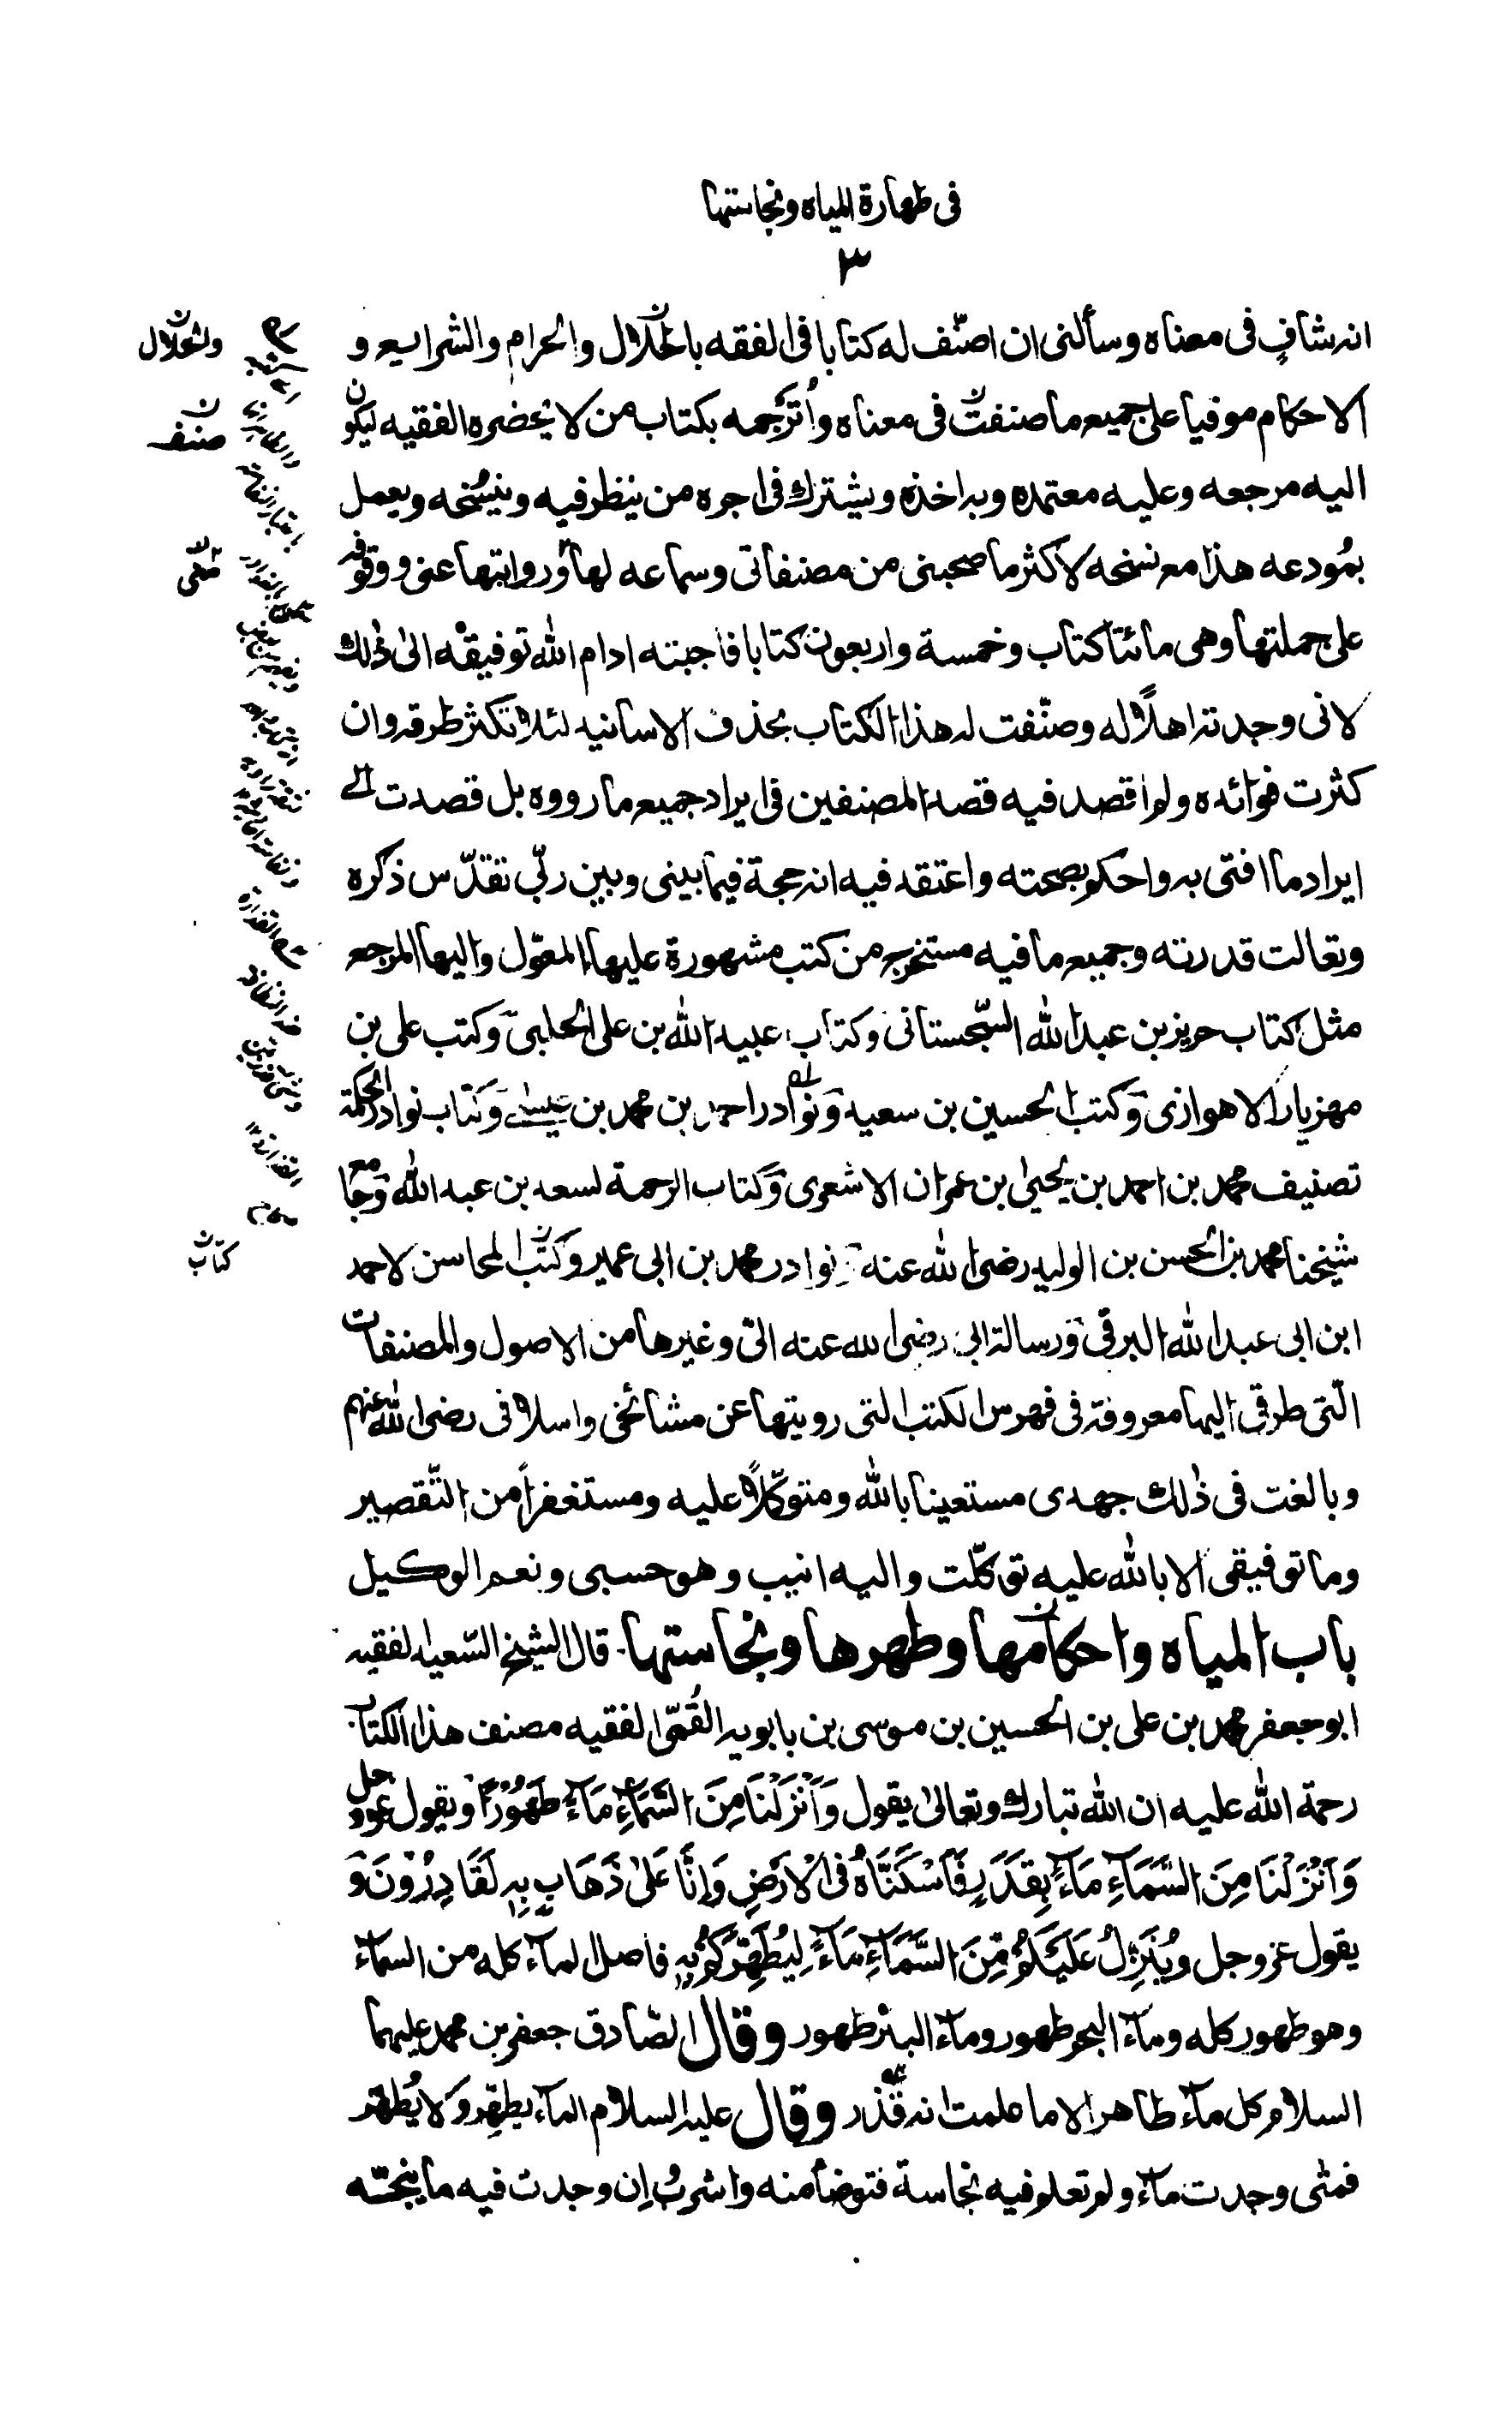 فى طهارة المياه ونجاستها
٣
انه شافٍ فى معناه وسألنى ان اصنّف له كتابا فى الفقه بالحلال والحرام والشرايع و
الاحكام موفيا على جميع ما صنفت فى معناه وأُترجمه بكتاب من لا يحضره الفقيه ليكون
اليه مرجعه وعليه معتمده وبه اخذه ويشترك فى اجره من ينظر فيه وينسُخه ويعمل
بمُودعه هذا مع نسخه لاكثر ما صحبنى من مصنفاتى وسماعه لها وروايتها عنى ووقوفه
على جملتها وهى مائتا كتاب وخمسة واربعون كتابا فاجبته ادام الله توفيقه الى ذٰلك
لانى وجدته اهلًا له وصنّفت له هذا الكتاب بحذف الاسانيد لئلا تكثر طرقه وان
كثرت فوائده ولم اقصد فيه قصد المصنفين فى ايراد جميع ما رووه بل قصدت الى
ايراد ما افتى به واحكم بصحته واعتقد فيه انه حجة فيما بينى وبين ربّى تقدّس ذكره
وتعالت قدرته وجميع ما فيه مستخرج من كتب مشهورة عليها المعوّل واليها المرجع
مثل كتاب حريز بن عبد الله السّجستانى وكتاب عبيد الله بن على الحلبى وكتب على بن
مهزيار الاهوازى وكتب الحسين بن سعيد ونوادر احمد بن محمد بن عيسى وكتاب نوادر الحكمة
تصنيف محمد بن احمد بن يحيىٰ بن عمران الاشعرى وكتاب الرحمة لسعد بن عبد الله وجامع
شيخنا محمد بن الحسن بن الوليد رضى الله عنه ونوادر محمد بن ابى عمير وكتب المحاسن لاحمد
ابن ابى عبد الله البرقى ورسالة ابى رضى الله عنه الىّ وغيرها من الاصول والمصنفات
الّتى طرقى اليها معروفة فى فهرس الكتب التى رويتها عن مشائخى واسلافى رضى الله عنهم
وبالغت فى ذٰلك جهدى مستعينا بالله ومتوكّلًا عليه ومستغفراً من التّقصير
وما توفيقى الا بالله عليه توكّلت واليه انيب وهو حسبى ونعم الوكيل
باب المياه واحكامها وطهرها ونجاستها قال الشيخ السّعيد الفقيه
ابو جعفر محمد بن على بن الحسين بن موسى بن بابويه القُمّى الفقيه مصنف هذا الكتاب
رحمة الله عليه ان الله تبارك وتعالىٰ يقول وَاَنْزَلْنَا مِنَ السَّمَآءِ مَآءً طَهُوْرًا ويقول عزوجل
وَاَنْزَلْنَا مِنَ السَّمَآءِ مَآءً بِقَدَرٍ فَاَسْكَنَّاهُ فى الْاَرْضِ وَاِنَّا عَلىٰ ذَهَابٍ بِهٖ لَقَادِرُوْنَ وَ
يقول عزوجل ويُنَزِّلُ عَلَيْكُمْ مِّنَ السَّمَآءِ مَآءً لِيُطَهِّرَكُمْ بِهٖ فاصل المآء كله من السمآء
وهو طهور كله ومآء البحر طهور ومآء البئر طهور وقال الصّادق جعفر بن محمد عليهما
السلام كل مآء طاهر الا ما علمت انه قذر وقال عليه السلام المآء يطهّر وَلا يُطهّر
فمتٰى وجدت مآء ولم تعلم فيه نجاسة فتوضأ منه واشربْ اِن وجدت فيه ما ينجسه
والحلال
صنف
كتاب